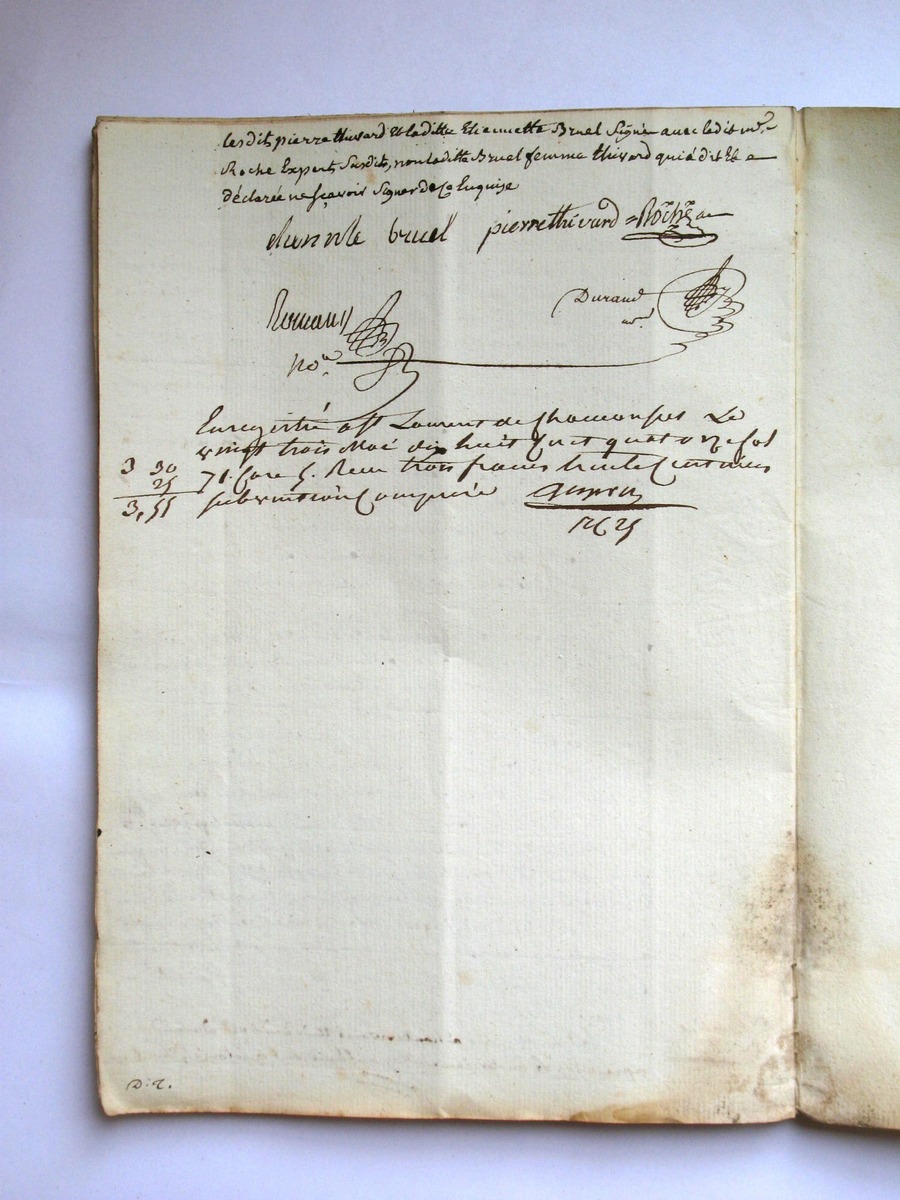 lesdits pierre thivard et laditte Etiennette Bruel Signé avec ledit mr
Roche Expert Susdit, non laditte Bruel femme thivard qui á dit et
déclarée ne sçavoir Signer de ce Enquise
etiennete bruel pierre thivard Roche
Durand
nre
Romany
Nore
Enregistré a St Laurent de Chamousset Le
vingt trois Mai dix huit Cent quatorze fol
3 30
71. Case 5. Recu trois francs trente Centimes
25
3,55
subvention Comprise
D: 2.